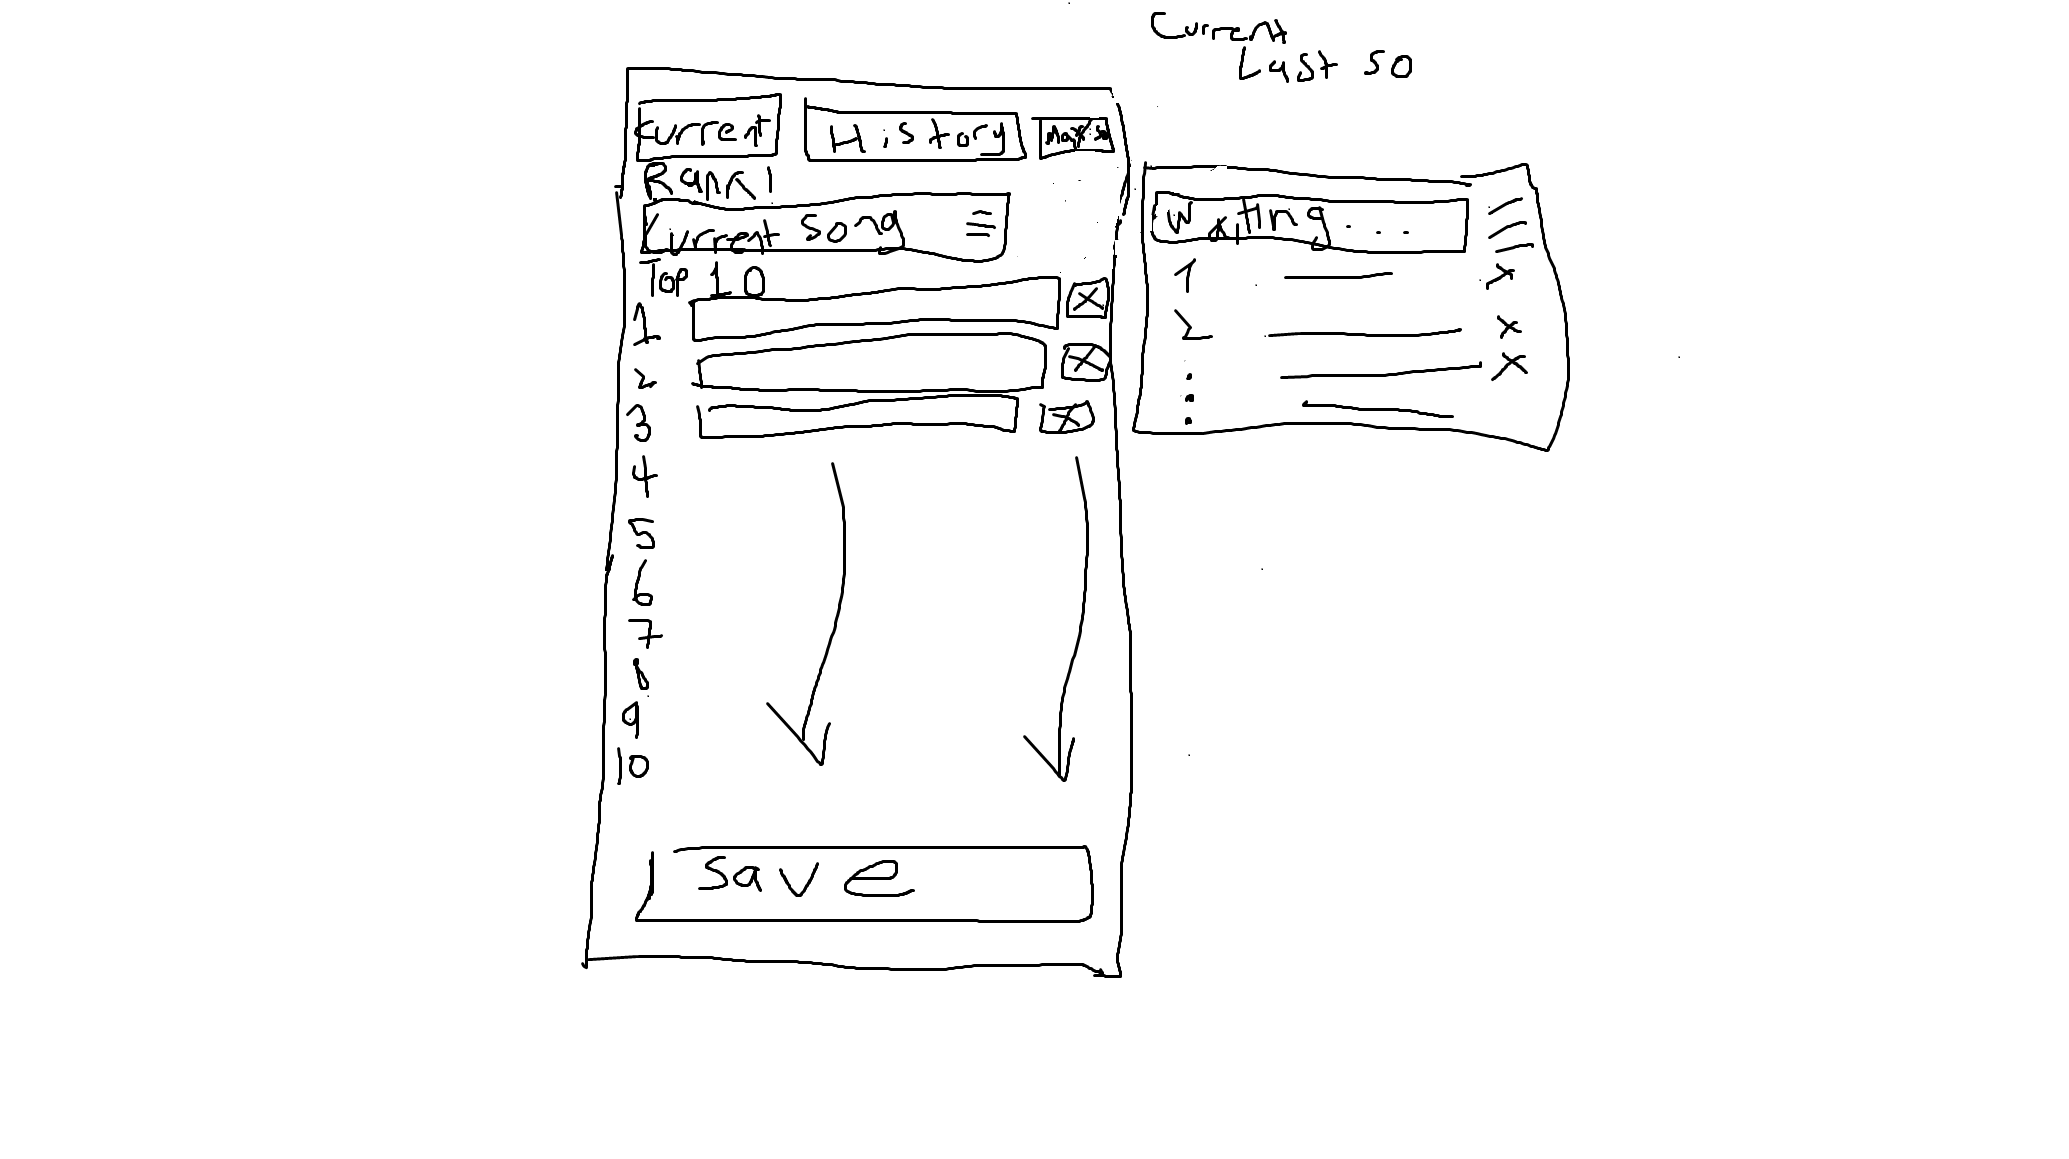 Current
Last 50
Current History Max 50
Rank 1
Current Song
Top 10
1 X
2 X
3 X
4
5
6
7
8
9
10
Save
Waiting...
1 X
2 X
X